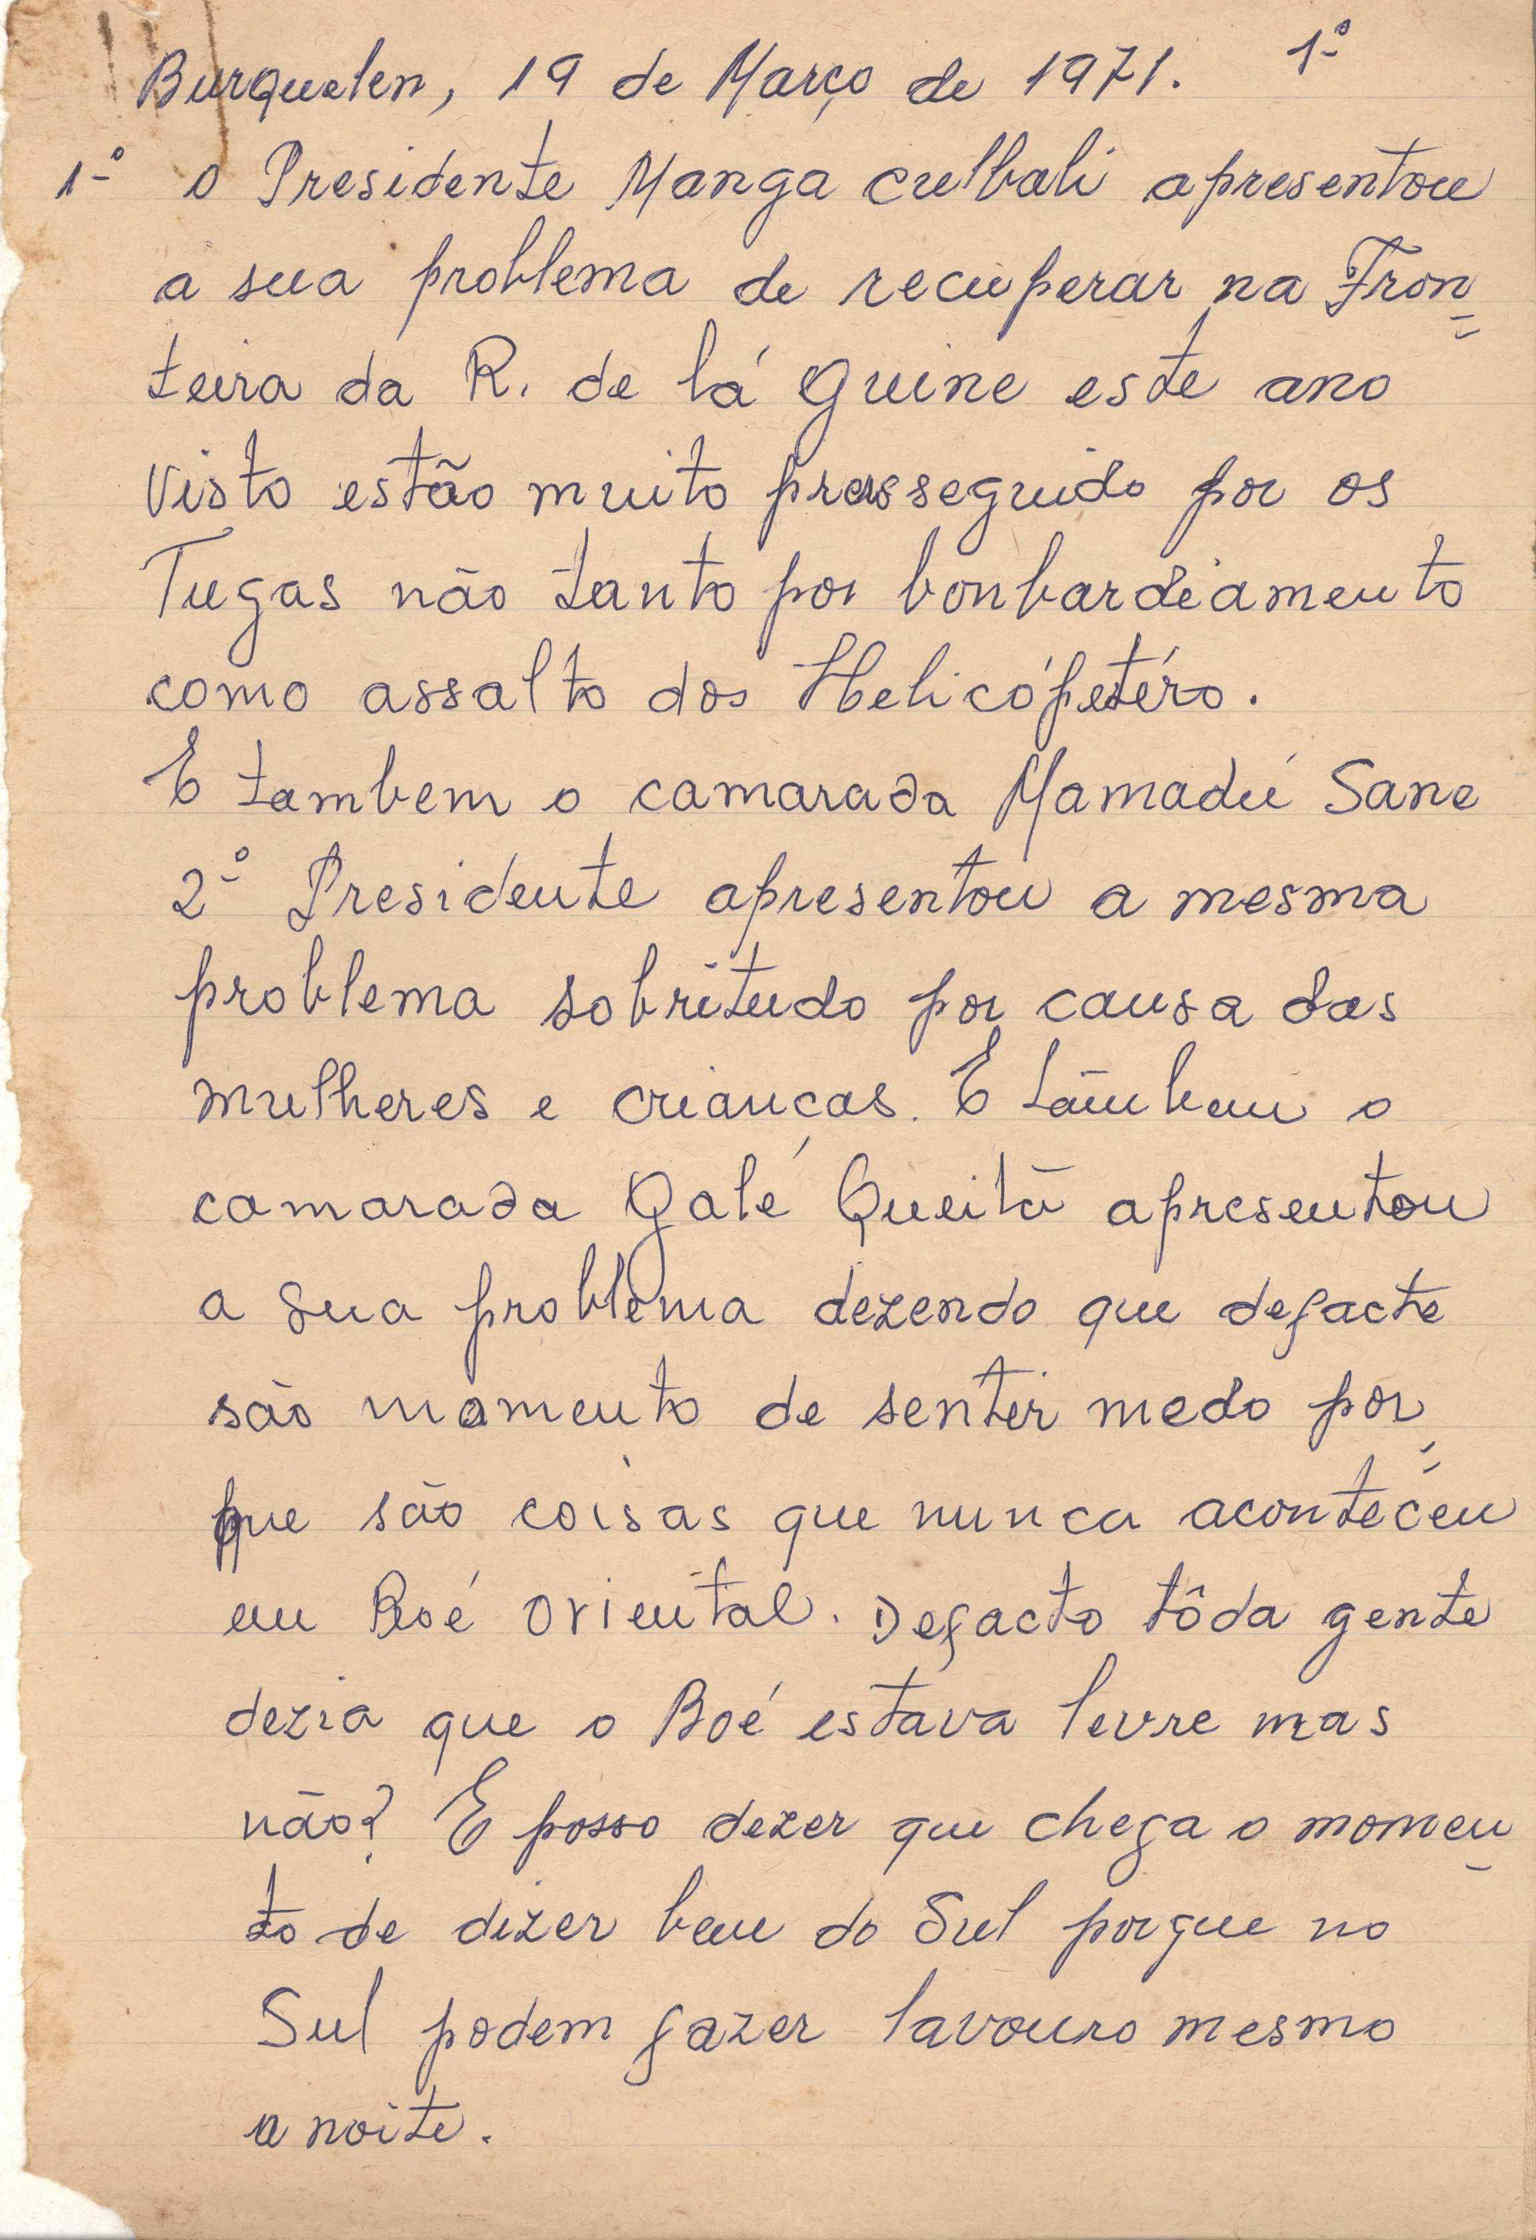 Burquelen, 19 de Março de 1971. 1º
1º o Presidente Manga culbali apresentou
a sua problema de recuperar na Fron=
teira da R. de lá Guine este ano
visto estão muito prosseguido por os
Tugas não tanto por bonbardiamento
como assalto dos Helicópetéro.
E tambem o camarada Mamadú Sane
2º Presidente apresentou a mesma
problema sobritudo por causa das
mulheres e crianças. E tãmbem o
camarada Galé Queitã apresentou
a sua problema dezendo que defacte
são momento de sentir medo por=
que são coisas que nunca aconteceu
em Boé oriental. Defacto tôda gente
dezia que o Boé estava levre mas
não? E posso dezer que chega o momen-
to de dizer bem do Sul porque no
Sul podem fazer lavouro mesmo
a noite.